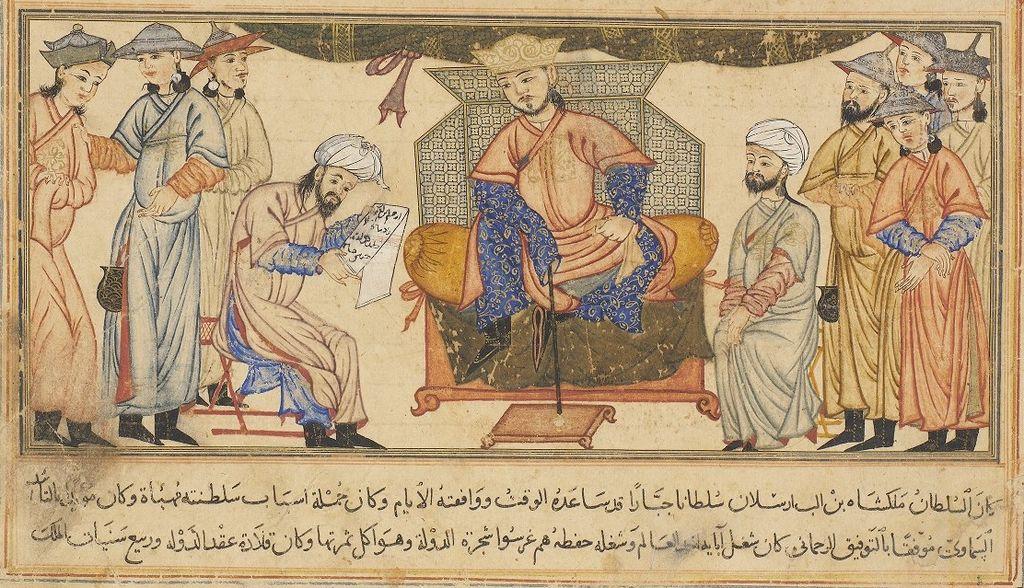 كان السلطان ملكشاه بن الب ارسلان سلطانا جبّارًا قد ساعده الوقت ووافقته الايام وكان جملة اسباب سلطنته مهيأة وكان
السماوي موفقا بالتوفيق الرحماني كان شغل آبايه العالم وشغله حفظه هم غرسوا شجرة الدولة وهو اكل ثمرتها وكان قلادة عقد الدولة وربيع سنيات الملك